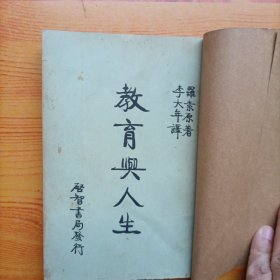 羅素原著
李大年譯
教育與人生
啟智書局發行